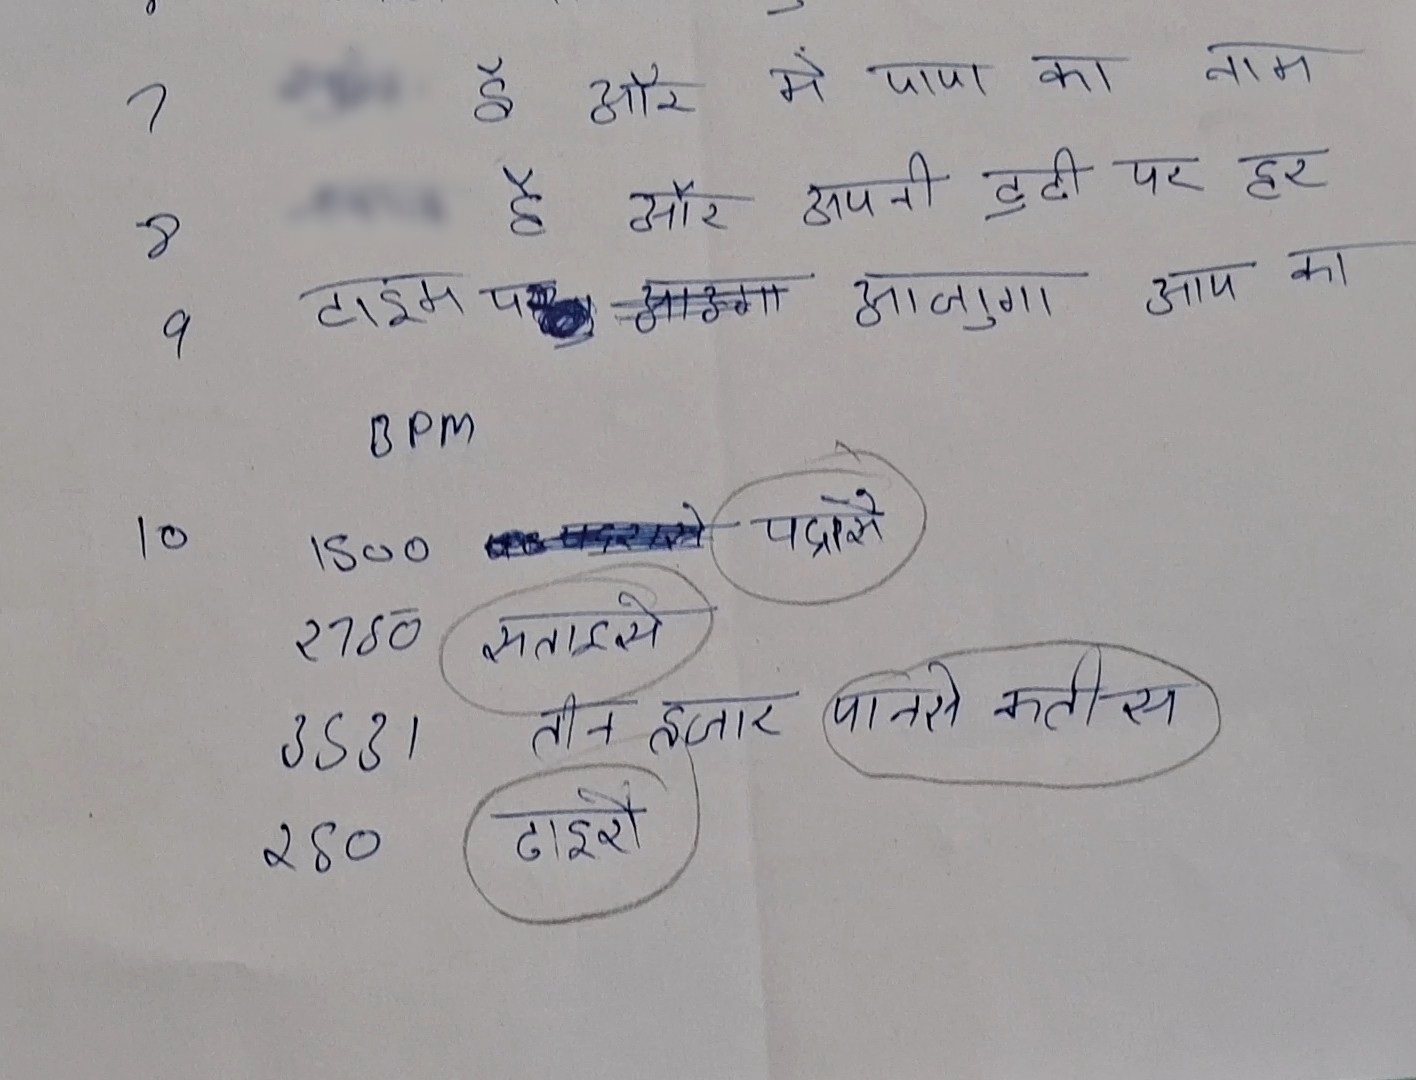 7 हैं और मे पापा का नाम
8 हैं और अपनी डुटी पर हर
9 टाइम पर आजुगा आप का
BPM
10 1500 पद्रोसे
2750 सताइसे
3531 तीन हजार पानसे कतीस
250 ढाइसे